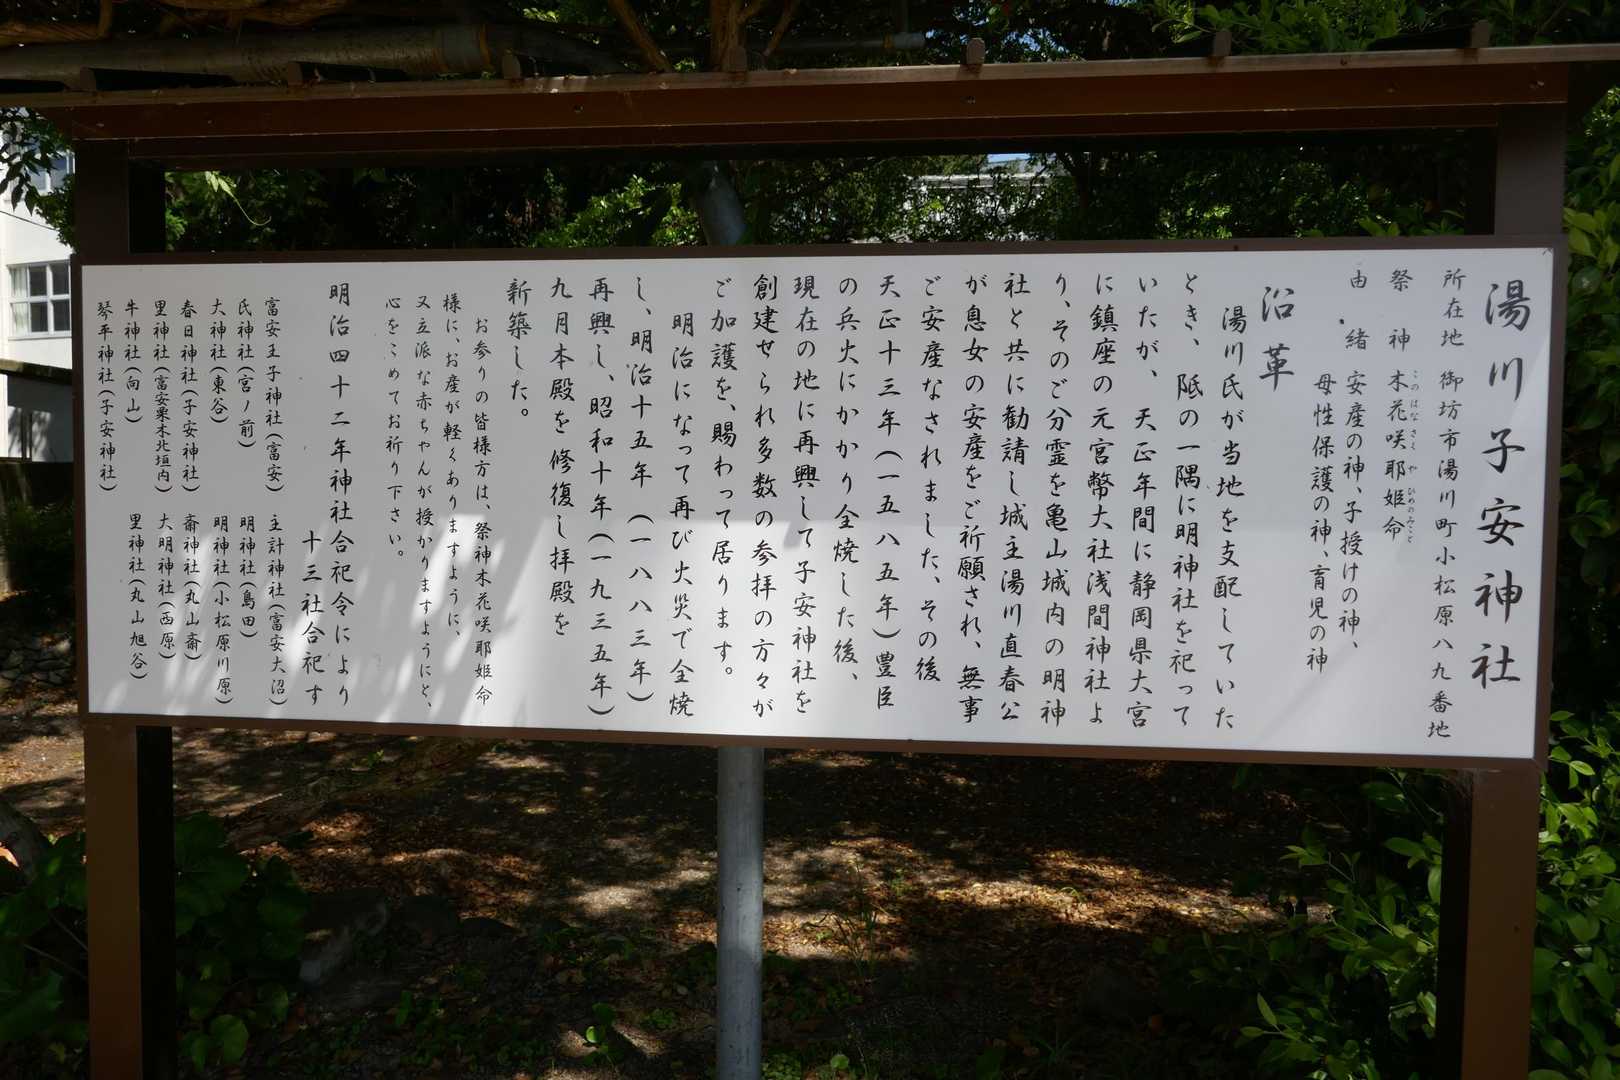 湯川子安神社
所在地　御坊市湯川町小松原八九番地
祭　神　木花咲耶姫命
このはなさくやひめのみこと
由　緒　安産の神、子授けの神、
母性保護の神、育児の神
沿革
湯川氏が当地を支配していた
とき、阺の一隅に明神社を祀って
いたが、天正年間に静岡県大宮
に鎮座の元官幣大社浅間神社よ
り、そのご分霊を亀山城内の明神
社と共に勧請し城主湯川直春公
が息女の安産をご祈願され、無事
ご安産なされました、その後
天正十三年（一五八五年）豊臣
の兵火にかかり全焼した後、
現在の地に再興して子安神社を
創建せられ多数の参拝の方々が
ご加護を、賜わって居ります。
明治になって再び火災で全焼
し、明治十五年（一八八三年）
再興し、昭和十年（一九三五年）
九月本殿を修復し拝殿を
新築した。
お参りの皆様方は、祭神木花咲耶姫命
様に、お産が軽くありますように、
又立派な赤ちゃんが授かりますようにと、
心をこめてお祈り下さい。
明治四十二年神社合祀令により
十三社合祀す
富安王子神社（富安）　主計神社（富安大沼）
氏神社（宮ノ前）　明神社（島田）
大神社（東谷）　明神社（小松原川原）
春日神社（子安神社）　斎神社（丸山斎）
里神社（富安栗木北垣内）　大明神社（西原）
牛神社（向山）　里神社（丸山旭谷）
琴平神社（子安神社）